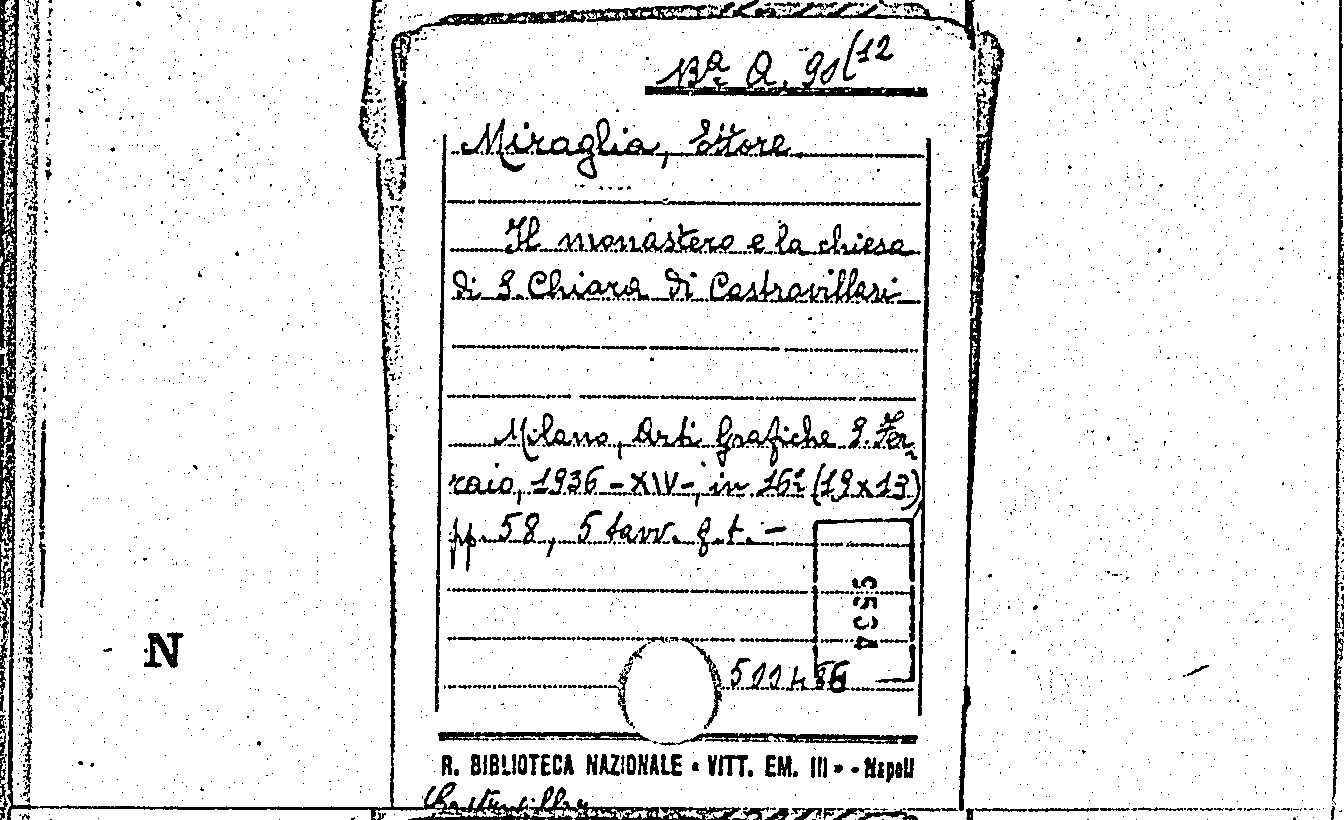 Ba Q. 90(12
Miraglia, Ettore.
Il monastero e la chiesa
di S. Chiara di Castrovillari
Milano, Arti Grafiche S. Fer-
raio, 1936 - XIV -, in 16º (19x13)
pp. 58, 5 tavv. f. t. -
N
R. BIBLIOTECA NAZIONALE « VITT. EM. III » - Napoli